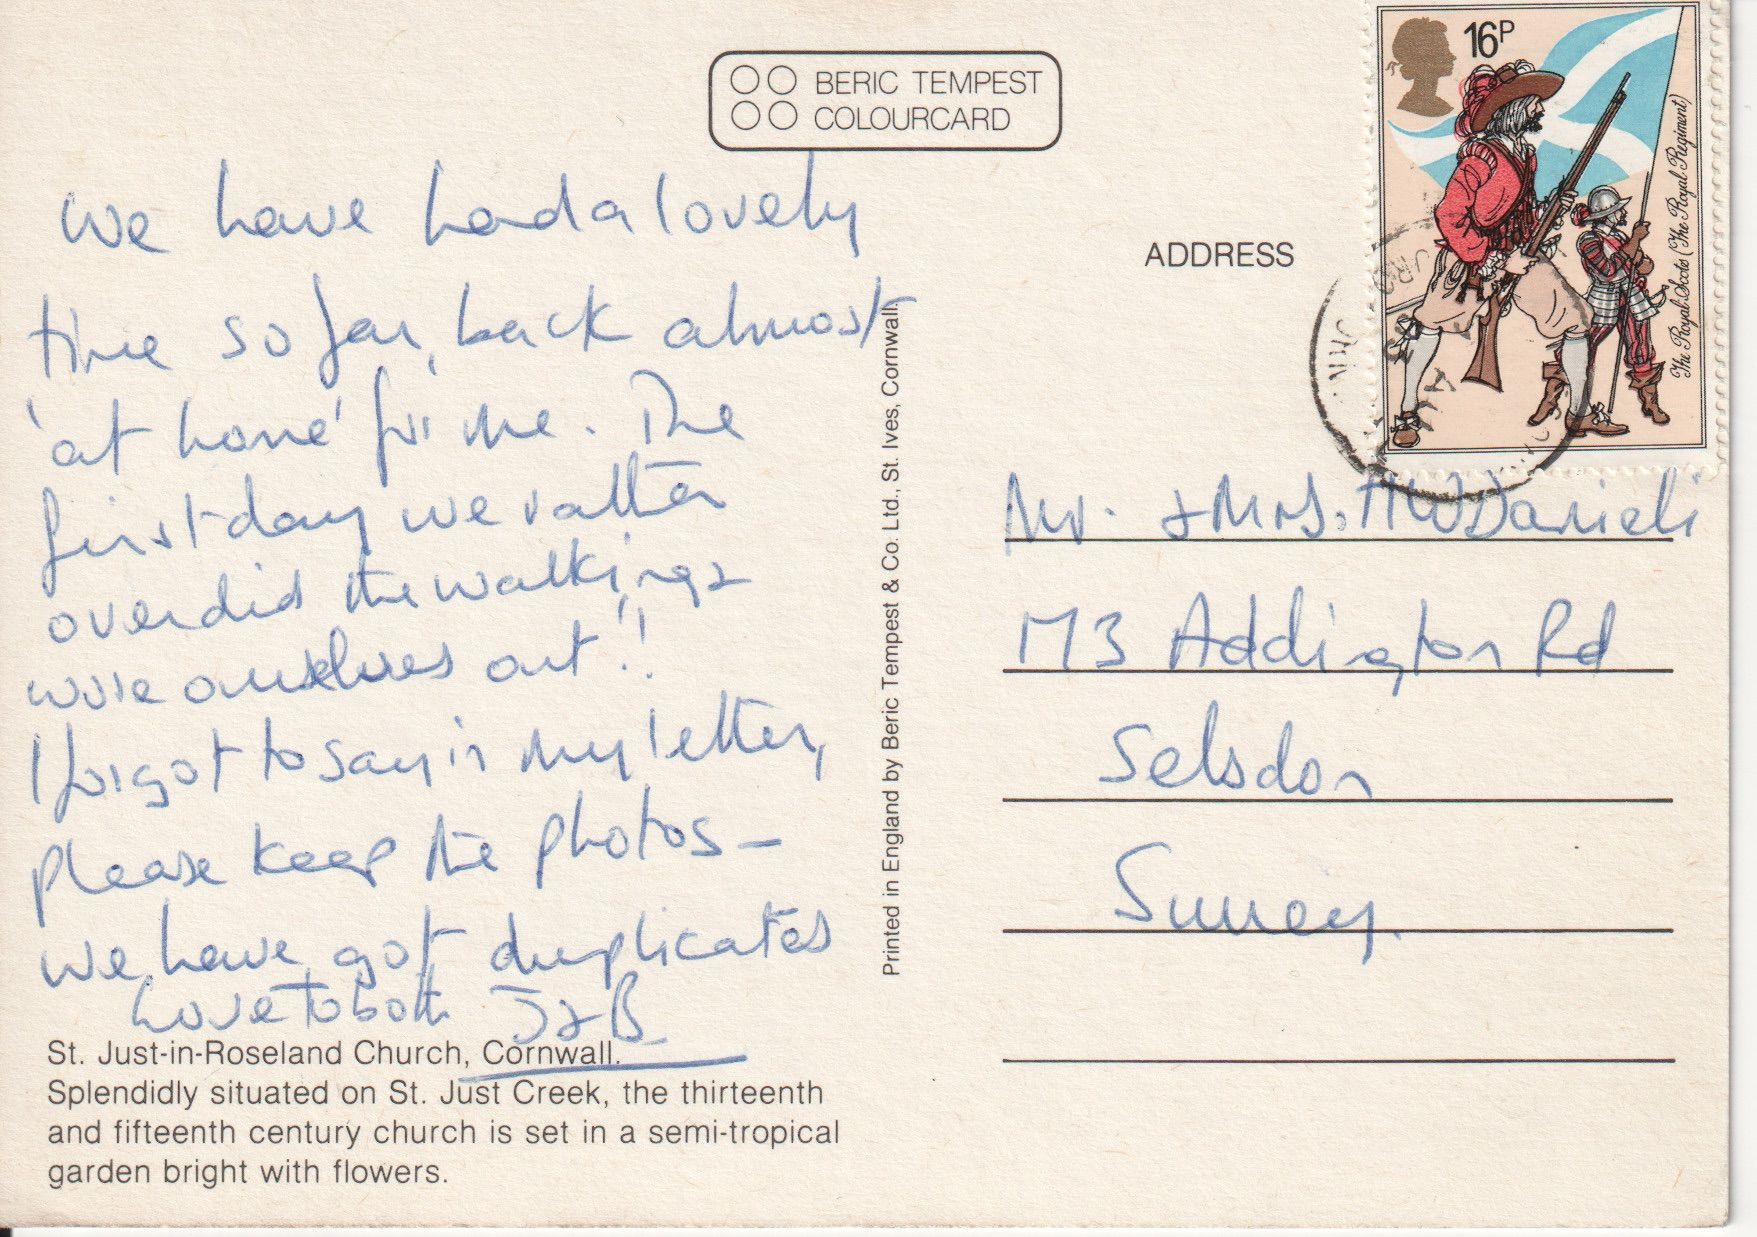 BERIC TEMPEST
COLOURCARD
We have had a lovely
time so far, back almost
'at home' for me. The
first day we rather
overdid the walking &
wore ourselves out!!
I forgot to say in my letter,
please keep the photos –
we have got duplicates
Love to both J & B
St. Just-in-Roseland Church, Cornwall.
Splendidly situated on St. Just Creek, the thirteenth
and fifteenth century church is set in a semi-tropical
garden bright with flowers.
Printed in England by Beric Tempest & Co. Ltd., St. Ives, Cornwall.
16P
The Royal Scots (The Royal Regiment)
ADDRESS
Mr. & Mrs.
173 Addington Rd
Selsdon
Surrey.